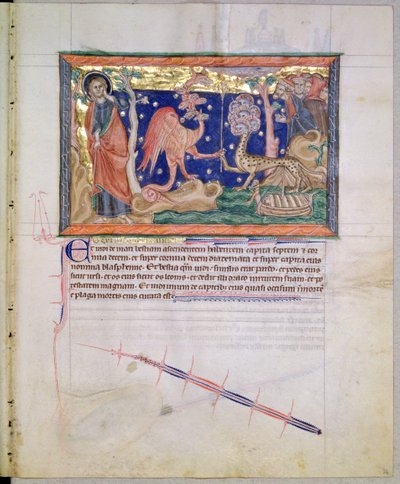 Et vidi de mari bestiam ascendentem habentem capita septem & cor
nua decem. et super cornua decem diademata et super capita eius
nomina blasphemie. Et bestia qm vidi. similis erat pardo. et pedes eius
sicut ursi. et os eius sicut os leonis. et dedit illi draco virtutem suam. et po
testatem magnam. Et vidi unum de capitibz eius quasi occisum in morte
et plaga mortis eius curata est.